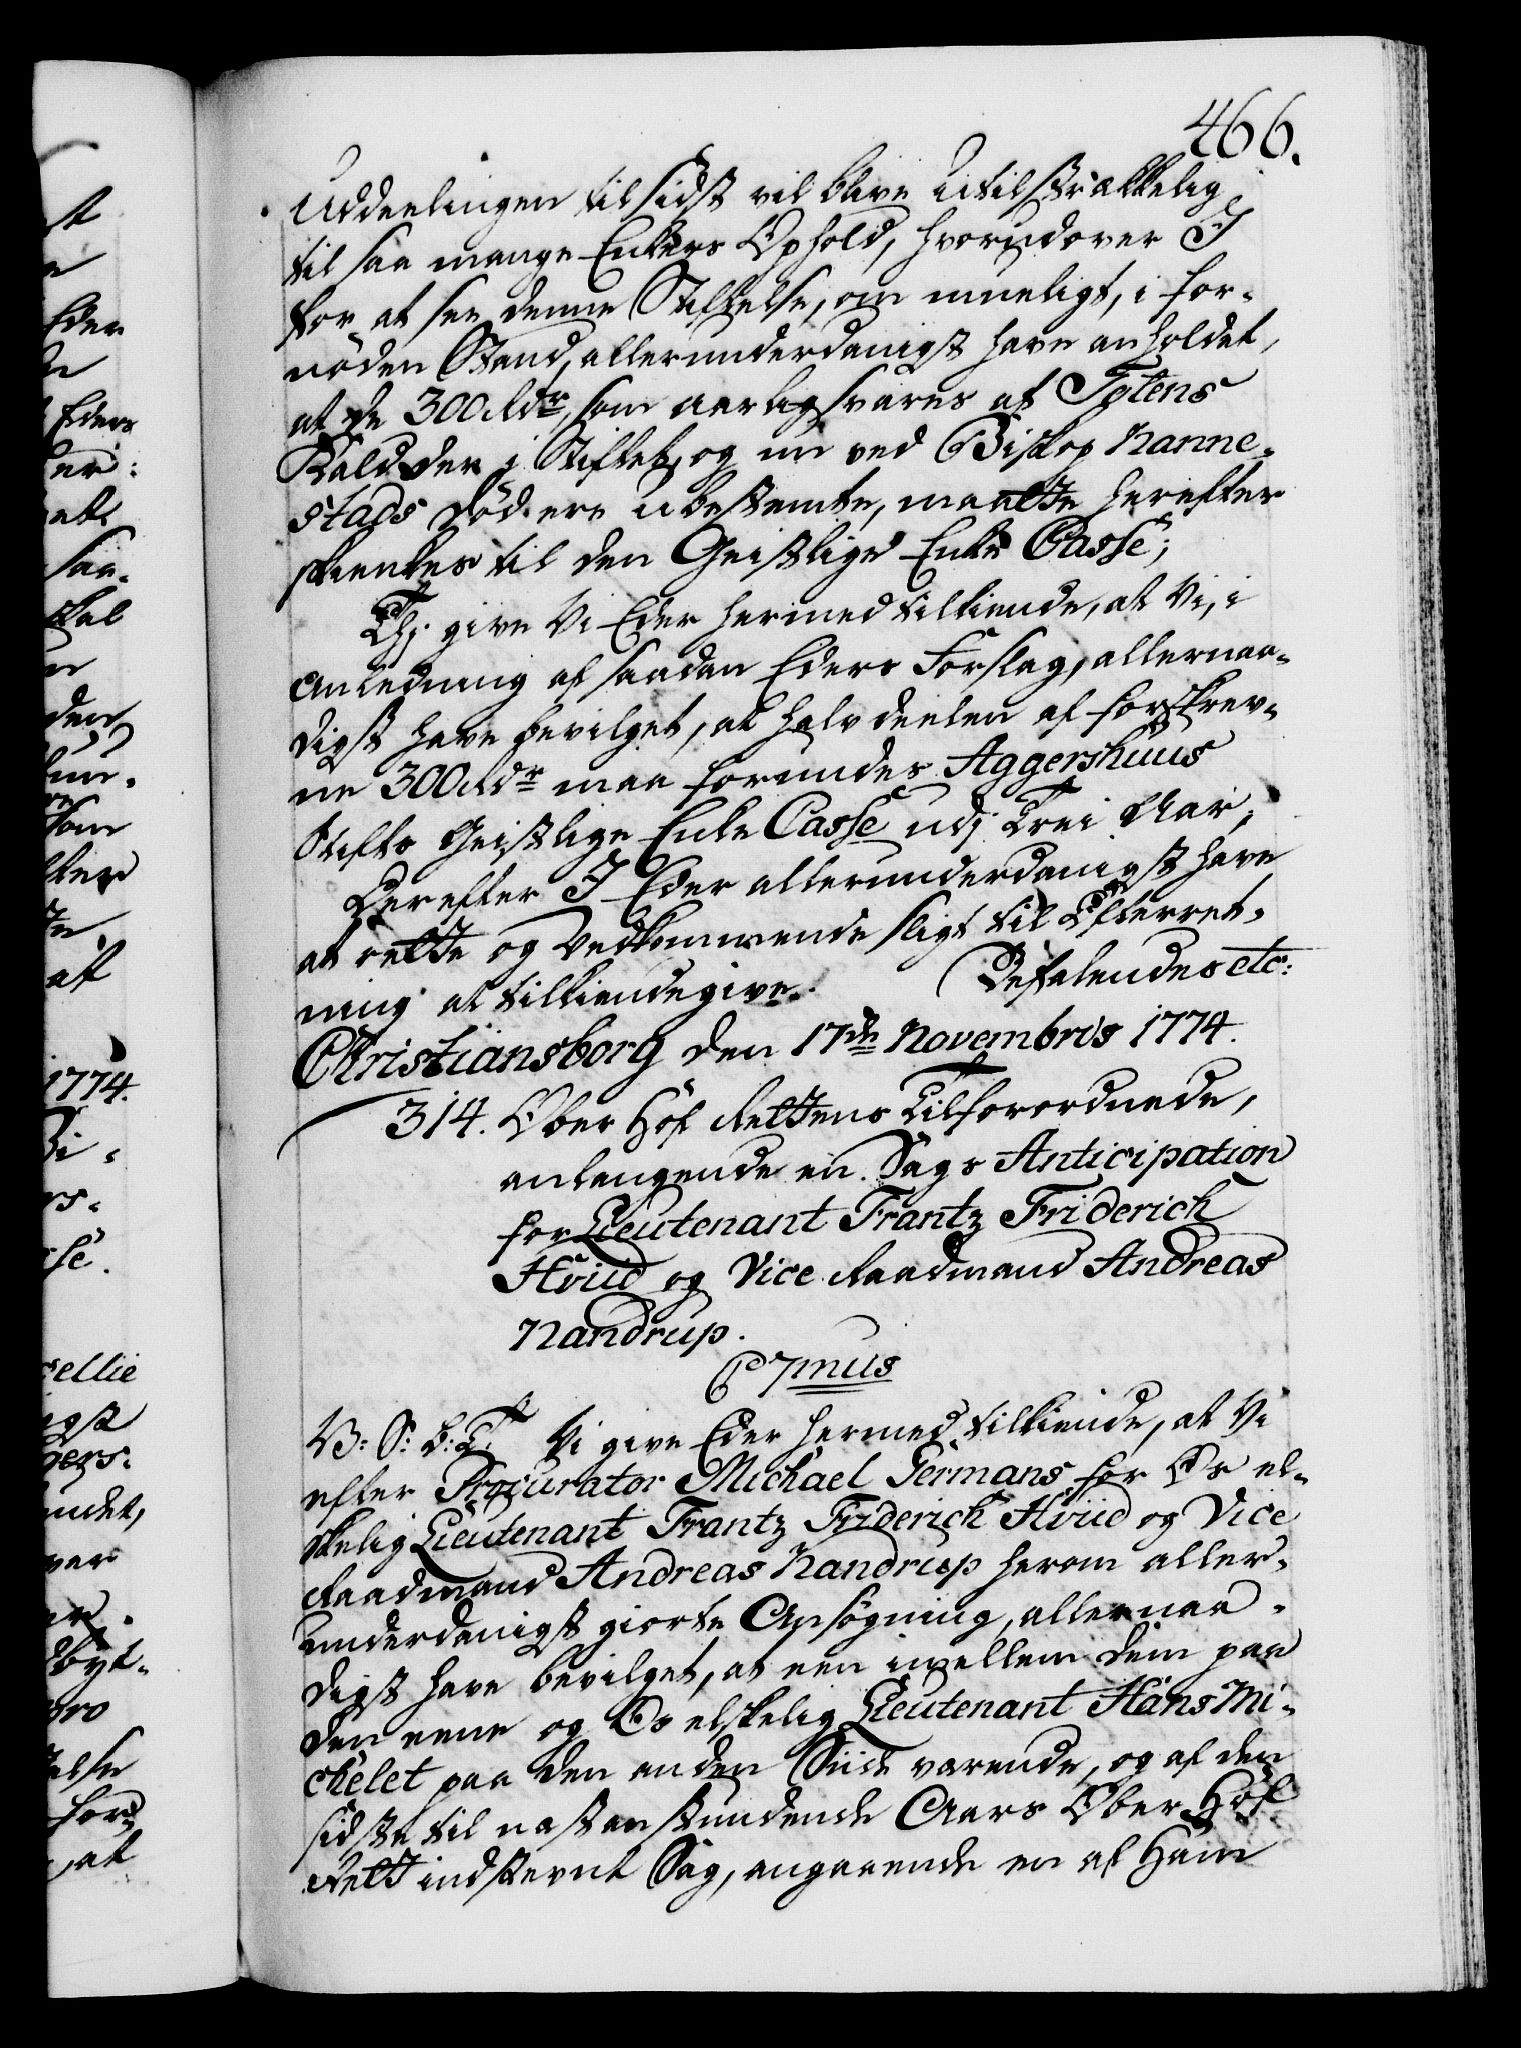 466.
Uddeelingen til sidst vil blive utilstrækkelig
til saa mange Enkers Ophold, hvorudover I
for at see denne Stiftelse, om mueligt, i for-
nöden Stand, allerunderdanigst have anholdet,
at de 300 Rdr, som aarlig svares af Totens
Kald der i Stiftet, og nu ved Biskop Nanne-
stads Död ere ubestemte, maatte herefter
skienkes til den Geistlige Enke Casse;
Thj give Vi Eder hermed tilkiende, at Vi, i
Anledning af saadan Eders Forslag, allernaa-
digst have bevilget, at halvdeelen af forskrev-
ne 300 Rdr maa forundes Aggershuus
Stifts Geistlige Enke Casse udj Trei Aar;
Derefter I Eder allerunderdanigst have
at rette og Vedkommende sligt til Efterret-
ning at tilkiendegive. Befalendes etc:
Christiansborg den 17de Novembris 1774.
314. Ober Hof Rettens Tilforordnede,
anlangende en Sags Anticipation
for Lieutenant Frantz Friderich
Hviid og Vice Raadmand Andreas
Nandrup.
C 7mus
V: S: b: T: Vi give Eder hermed tilkiende, at Vi
efter Procurator Michael Germans, for Os el-
skelig Lieutenant Frantz Friderich Hviid og Vice
Raadmand Andreas Nandrup herom aller-
underdanigst giorte Ansögning, allernaa-
digst have bevilget, at een imellem dem paa
den eene og Os elskelig Lieutenant Hans Mi-
chelet paa den anden Siide værende, og af den
sidste til næstanstundende Aars Ober Hof
Rett indstevnt Sag, angaaende en af Ham